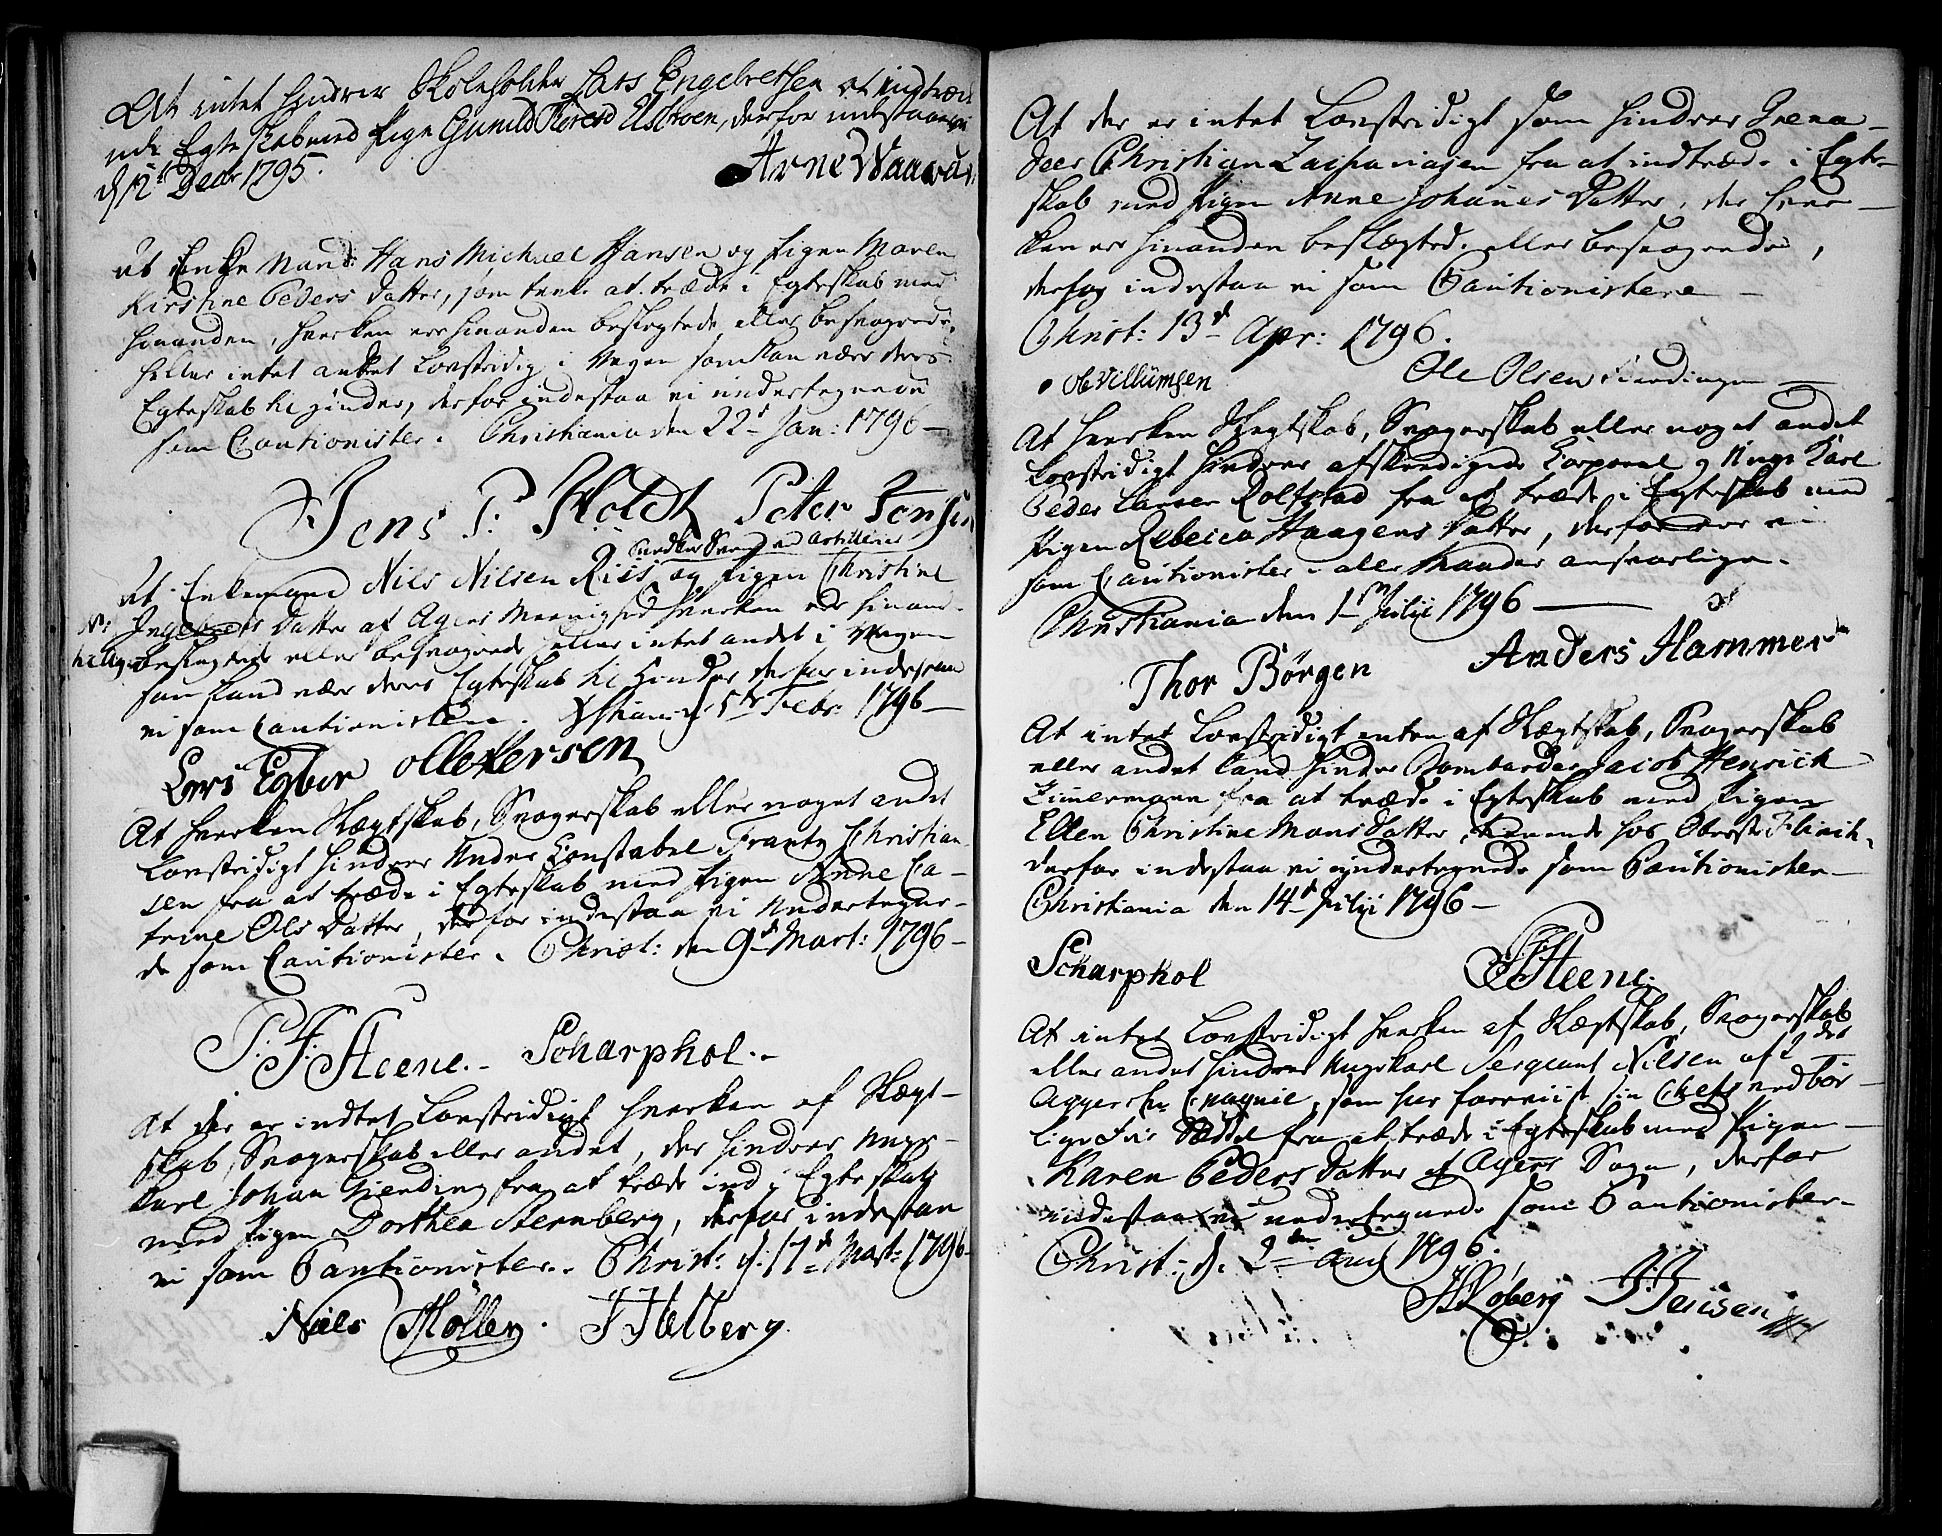 At intet hindrer Skoleholder Lars Engebretsen at indtræde
udi Egteskab med Pige Gunild Elstoen, derfor indestaaer
d 12t Decbr 1795.
Arne Waa
at Enke Mand: Hans Michael Hansen og Pigen Maren
Kirstine Peders Datter, som tænk at træde i Egteskab med
hinanden, hverken ere hinanden beslegtede eller besvogrede,
heller intet andet Lovstridig i Vegen som kan være deres
Egteskab til hinder, derfor indestaa vi undertegnede
som Cautionister. Christiania den 22d Jan: 1796 —
Jens P: Holdt Peter Jensen
Snedker Svend ved Artilleriet
At Enkemand Nils Nilsen Riis og Pigen Christine
Datter af Agers Meenighed hverken ere hinan-
beslegtede eller besvogrede heller intet andet i Vegen
som kand være deres Egteskab til Hinder derfor indestaa
vi som Cautionister. Xstiania d 5te Febr: 1796 —
Lars Egber Olle Hersen
At hverken Slægtskab, Svogerskab eller noget andet
Lovstridigt hindrer Under Constabel Frantz Christian-
sen fra at træde i Egteskab med Pigen Anne Ca-
trine Ols Datter, derfor indestaa vi Undertegne-
de som Cautionister. Christ: den 9d Mart: 1796 —
P. F. Steene.- Scharphol.-
At der er indtet Lovstridigt hverken af Slægt-
skab, Svogerskab eller andet, der hindrer Unge-
karl Johan Wending fra at træde ind i Egteskab
med Pigen Dorthea Sternberg, derfor indestaa
vi som Cautionister. Christ: d: 17d Mart: 1796 -
Niels Møller. J Helberg.
At der er intet Lovstridigt som hindrer Grena-
deer Christian Zachariasen fra at indtræde i Egte-
skab med Pigen Anne Johanes Datter, der hver-
ken ere hinanden beslægtede eller besvogrede,
derfor indestaa vi som Cautionistere —
Christ: 13d Apr: 1796.
Ob Villumsen Ole Olsen
At hverken Slegtskab, Svogerskab eller noget andet
Lovstridigt hindrer afskeediget Corporal og Unge Karl
Peder Larsen Rolfstad fra at træde i Egteskab med
Pigen Rebeica Haagens Datter, derfor ere vi
som Cautionister i alle Maader ansvarlige.
Christiania den 1ste Julii 1796 —
Thor Børgen Anders Hammer
At intet Lovstridigt enten af Slægtskab, Svogerskab
eller andet kand hindre Bombardeer Jacob Henrich
Zimermann fra at træde i Egteskab med Pigen
Ellen Christine Mons Datter, tienende hos Oberst
derfor indestaa vi undertegnede som Cautionister —
Christiania den 14d Julii 1796 —
Scharphol PF Steene.
At intet Lovstridigt hverken af Slægtskab, Svogerskab
eller andet hindrer Ungekarl Sergeant Nilsen af 2det
Aggersh: Compagnie, som har foreviist sin Chefs ved bør-
lige Frie Seddel fra at træde i Egteskab med Pigen
Karen Peders Datter af Agers Sogn, derfor
indestaa vi undertegnede som Cautionister —
Christ: d. 2den Aug 1796.